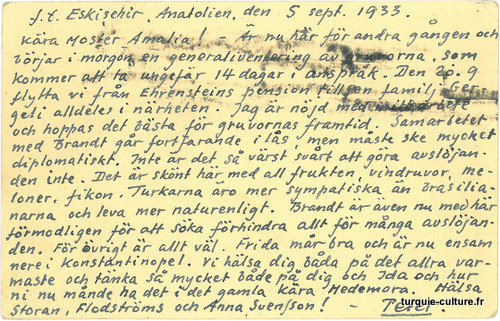 f.t. Eskisehir, Anatolien, den 5 sept. 1933.
Kära Moster Amalia! - Är nu här för andra gången och
börjar i morgon en generalinventering av gruvorna, som
kommer att ta ungefär 14 dagar i anspråk. Den 20.9
flytta vi från Ehrensteins pension till en familj
geli alldeles i närheten. Jag är nöjd med mitt arbete
och hoppas det bästa för gruvornas framtid. Samarbetet
med Brandt går fortfarande i lås, men måste ske mycket
diplomatiskt. Inte är det så värst svårt att göra avslöjan-
den inte. Det är skönt här med all frukten, vindruvor, me-
loner, fikon. Turkarna äro mer sympatiska än brasilia-
narna och leva mer naturenligt. Brandt är även nu med här
förmodligen för att söka förhindra allt för många avslöjan-
den. För övrigt är allt väl. Frida mår bra och är nu ensam
nere i Konstantinopel. Vi hälsa dig båda på det allra var-
maste och tänka så mycket både på dig och Ida och hur
ni nu månde ha det i det gamla kära Hedemora. Hälsa
Storan, Flodströms och Anna Svensson! - Peter.
turquie-culture.fr